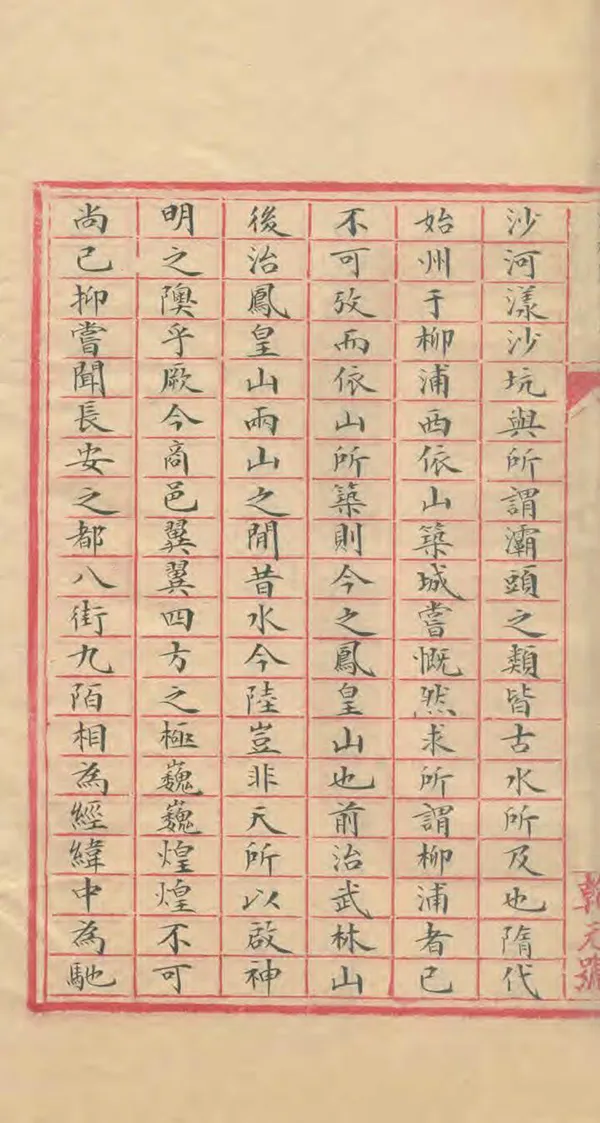 沙河漾沙坑與所謂灞頭之類皆古水所及也隋代
始州于柳浦西依山築城嘗慨然求所謂柳浦者已
不可攷而依山所築則今之鳳皇山也前治武林山
後治鳳皇山兩山之間昔水今陸豈非天所以啟神
明之隩乎厥今商邑翼翼四方之極巍巍煌煌不可
尚已抑嘗聞長安之都八街九陌相為經緯中為馳